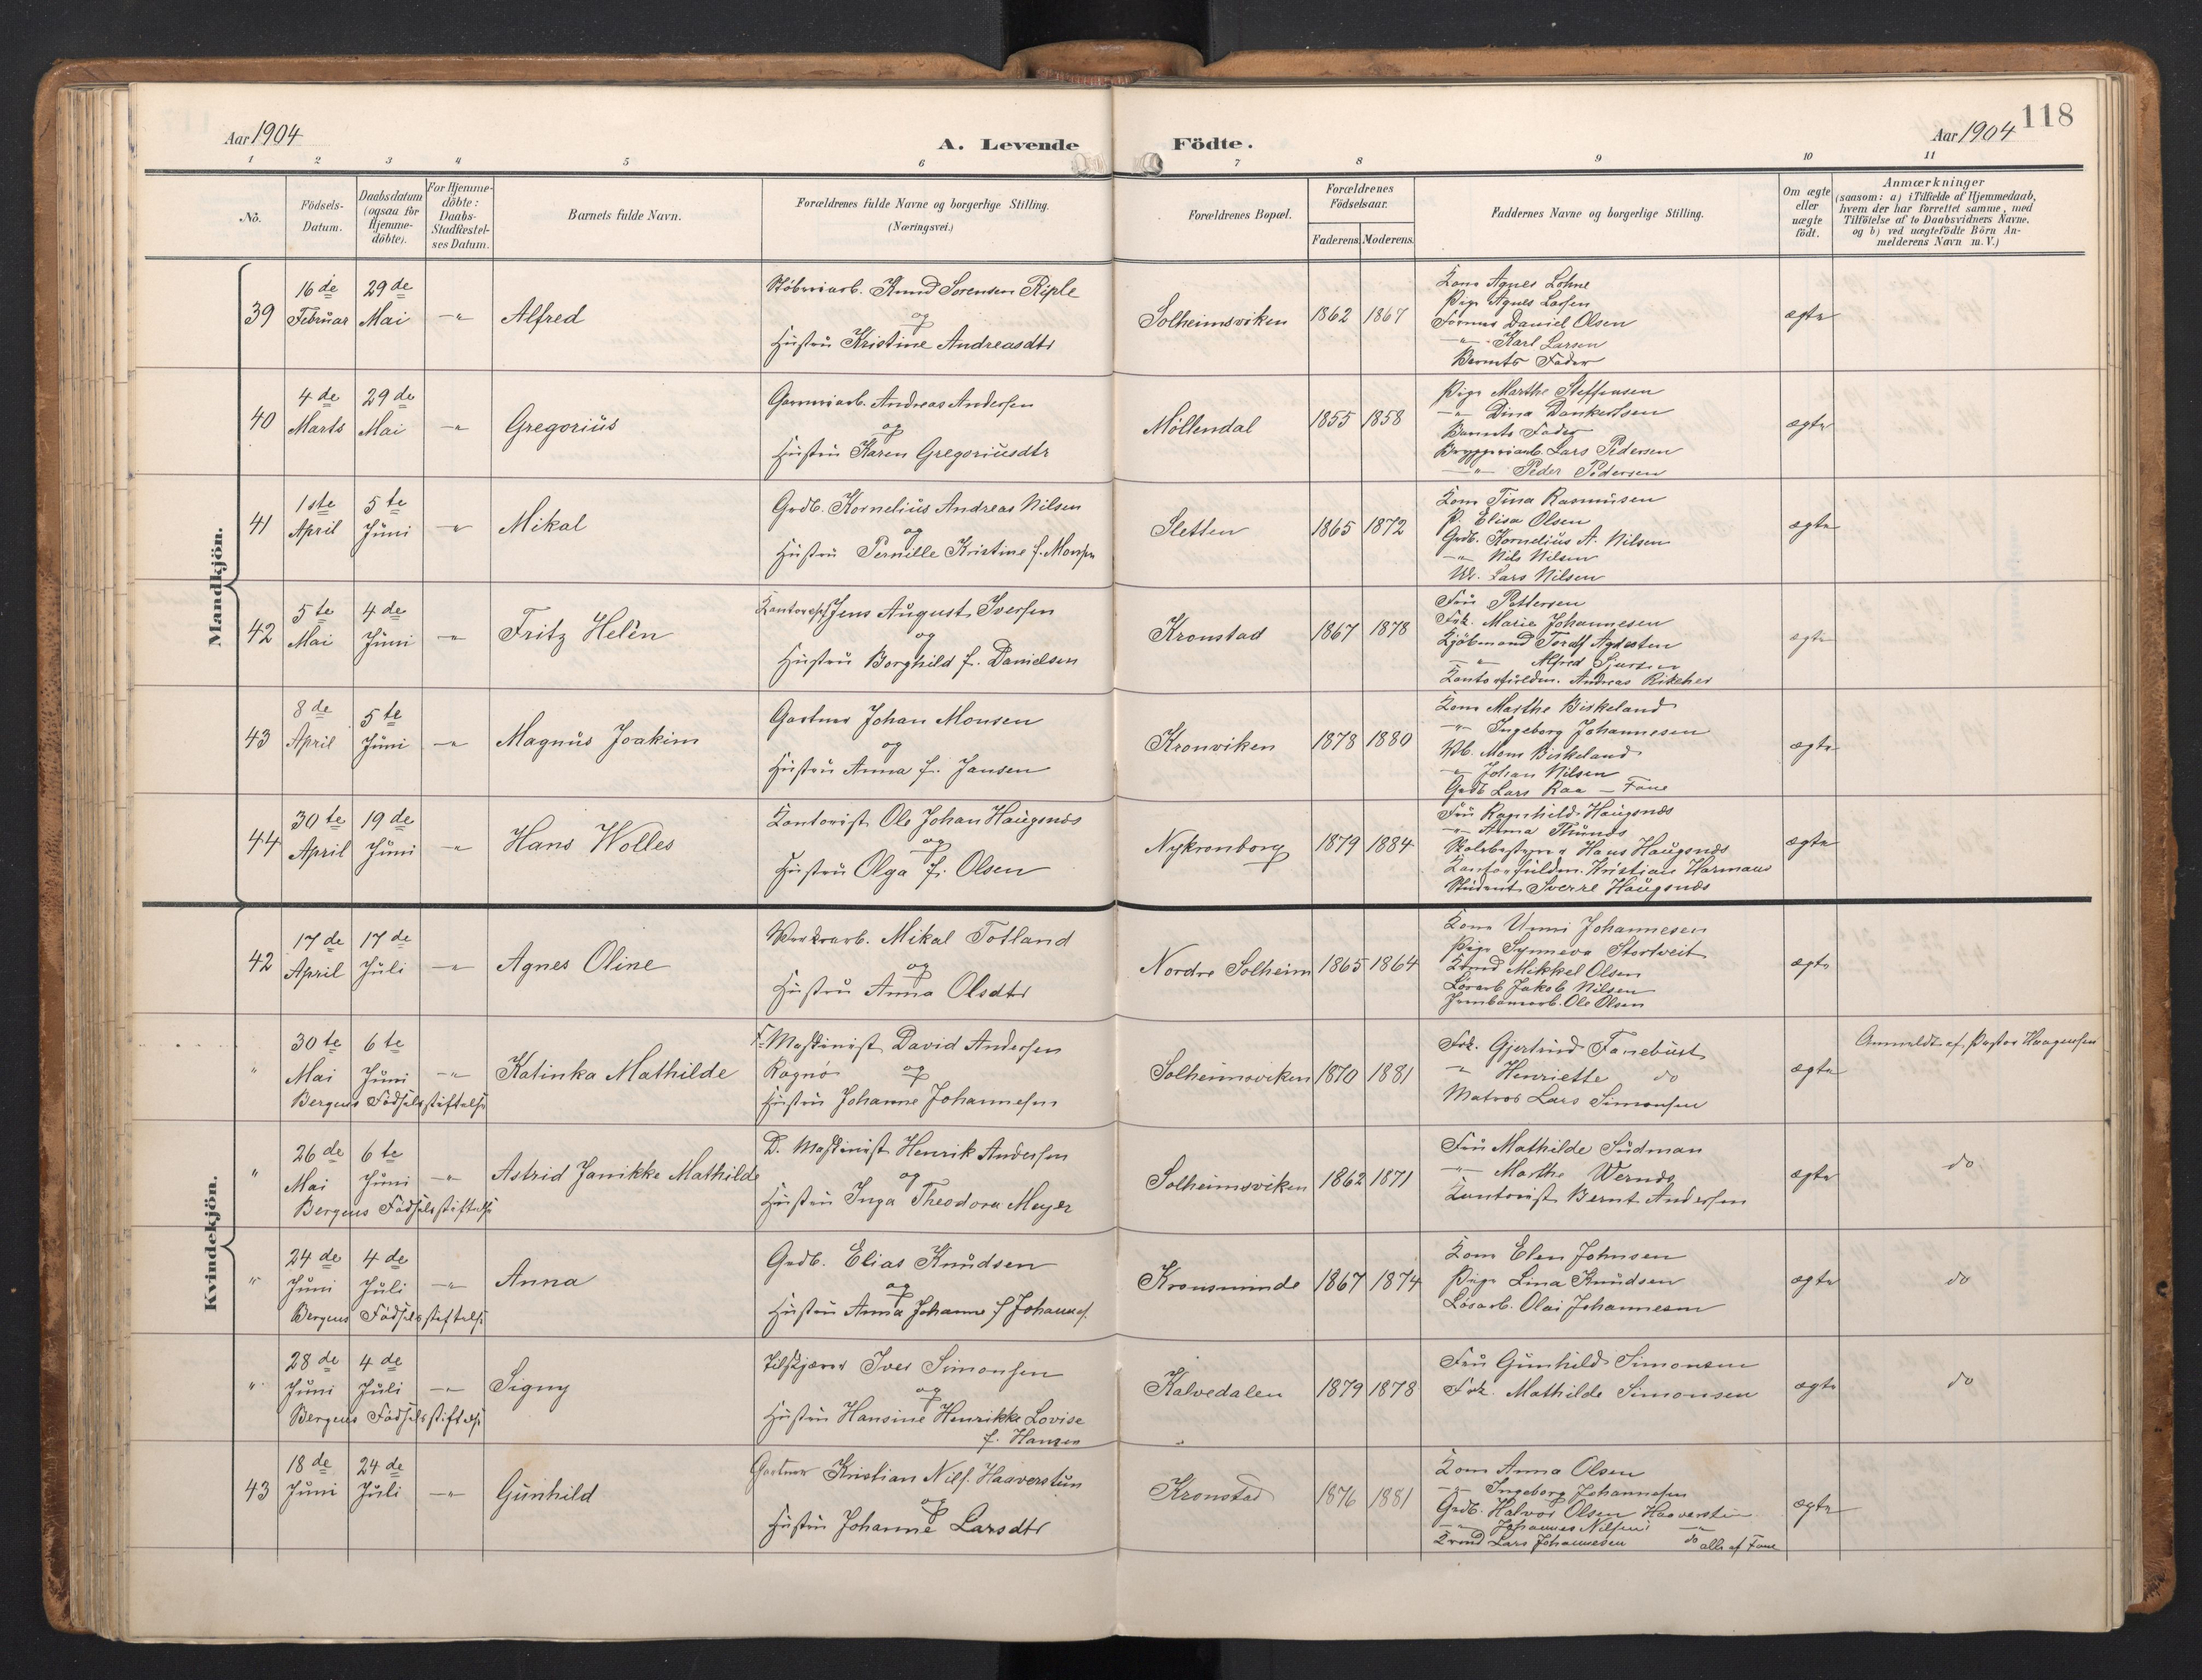 118
Aar 1904
A. Levende Födte.
Aar 1904
1 2 3 4 5 6 7 8 9 10 11
No.
Födsels-Datum.
Daabsdatum (ogsaa for Hjemme-döbte).
For Hjemme-döbte: Daabs-Stadfæstel-ses Datum.
Barnets fulde Navn.
Forældrenes fulde Navne og borgerlige Stilling.
(Næringsvei.)
Forældrenes Bopæl.
Forældrenes Födselsaar.
Faderens. Moderens.
Faddernes Navne og borgerlige Stilling.
Om ægte eller uægte födt.
Anmærkninger
(saasom: a) i Tilfælde af Hjemmedaab,
hvem der har forrettet samme, med
Tilföielse af to Daabsvidners Navne.
og b) ved uægtefödte Börn An-
melderens Navn m. V.)
Mandkjön.
39 16de Februar 29de Mai -"- Alfred
Støberiarb. Knud Sorensen Riple
og
Hustru Kristine Andreasdtr
Solheimsviken 1862 1867
Kone Agnes Lohne
Pige Agnes Larsen
Former Daniel Olsen
-"- Karl Larsen
Barnets Fader
ægte
40 4de Marts 29de Mai -"- Gregorius
Garveriarb. Andreas Andersen
og
Hustru Karen Gregoriusdtr
Möllendal 1855 1858
Pige Marthe Steffensen
-"- Dina Dankertsen
Barnets Fader
Bryggeriarb. Lars Pedersen
-"- Peder Pedersen
ægte
41 1ste April 5te Juni -"- Mikal
Grdb. Kornelius Andreas Nilsen
og
Hustru Pernille Kristine f. Monsen
Sletten 1865 1872
Kone Tina Rasmusen
P. Elisa Olsen
Grdb. Kornelius A. Nilsen
-"- Nils Nilsen
Uk. Lars Nilsen
ægte
42 5te Mai 4de Juni -"- Fritz Helên
Kontorchef Jens August Iversen
og
Hustru Borghild f. Danielsen
Kronstad 1867 1878
Fru Pettersen
Frk. Marie Johannesen
Kjöbmand Toralf Agdesten
-"- Alfred
Kontorfuldm. Andreas
ægte
43 8de April 5te Juni -"- Magnus Joakim
Gartner Johan Monsen
og
Hustru Anna f. Jansen
Kronviken 1878 1880
Kone Marthe Birkeland
-"- Ingeborg Johannesen
Mons Birkeland
-"- Johan Nilsen
Grdb Lars Raa - Fane
ægte
44 30te April 19de Juni -"- Hans Wolles
Kontorist Ole Johan Haugsnæs
og
Hustru Olga f. Olsen
Nykronborg 1879 1884
Fru Ragnhild Haugsnæs
-"- Anna Thunæs
Skolebestyrer Hans Haugsnæs
Kontorfuldm. Kristian Harmans
Student Sverre Haugsnæs
ægte
Kvindekjön.
42 17de April 17de Juli -"- Agnes Oline
Værksarb. Mikal Totland
og
Hustru Anna Olsdtr
Nordre Solheim 1865 1864
Kone Unni Johannesen
Pige Synneva Stortveit
Mikkel Olsen
Løsarb Jakob Nilsen
Jernbanearb. Ole Olsen
ægte
" 30te Mai 6te Juni -"- Katinka Mathilde
Bergens Födselsstiftelse
F. Maskinist David Andersen
Ragnö og
Hustru Johanne Johannesen
Solheimsviken 1870 1881
Frk. Gjertrud Fanebust
-"- Henriette do
Matros Lars Simonsen
ægte
Anmeldt af Pastor Haagensen
" 26de Mai 6te Juni -"- Astrid Janikke Mathilde
Bergens Födselsstiftelse
D. Maskinist Henrik Andersen
og
Hustru Inga Theodora Meyer
Solheimsviken 1862 1871
Fru Mathilde Sudman
-"- Marthe Wernds
Kontorist Bernt Andersen
ægte
do
" 24de Juni 4de Juli -"- Anna
Bergens Födselsstiftelse
Grdb. Elias Knudsen
og
Hustru Anna Johanne f Johannes.
Kronsminde 1867 1874
Kone Elen Johnsen
Pige Lina Knudsen
Løsarb. Olai Johannesen
ægte
do
" 28de Juni 4de Juli -"- Signy
Bergens Födselsstiftelse
Tilskjærer Iver Simonsen
og
Hustru Hansine Henrikke Lovise
f. Hansen
Kalvedalen 1879 1878
Fru Gunhild Simonsen
Frk. Mathilde Simonsen
ægte
do
43 18de Juni 24de Juli -"- Gunhild
Gartner Kristian Nils. Haaverstun
og
Hustru Johanne Larsdtr
Kronstad 1876 1881
Kone Anna Olsen
-"- Ingeborg Johannesen
Grdb. Halvor Olsen Haaverstun
-"- Johannes Nilsen -"-
Lars Johannesen do alle af Fane
ægte